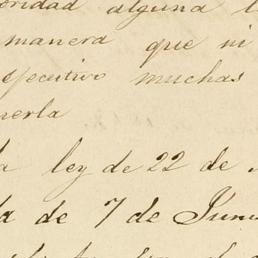 oridad alguna t
manera que ni
ejecutivo muchas
nerla
a ley de 22 de
da de 7 de Juni